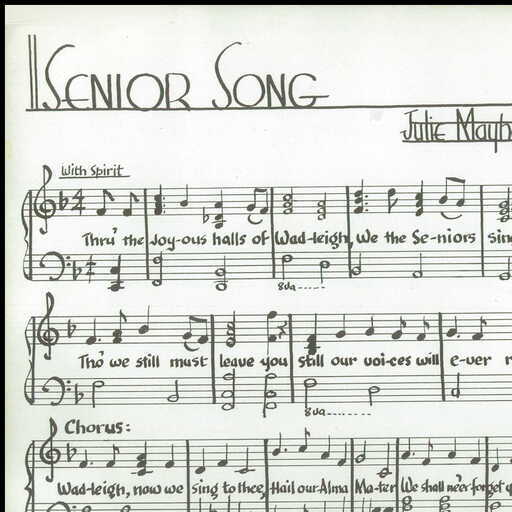 SENIOR SONG
Julie Mayh
With Spirit
Thru' the Joy-ous halls of Wad-leigh, We the Se-niors sin
8va
Tho' we still must leave you still our voi-ces will e-ver
8va
Chorus:
Wad-leigh, now we sing to thee, Hail our Alma Ma-ter We shall ne'er forget